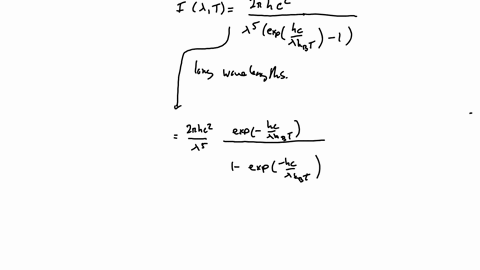 I (λ,T) = 2πhc² / λ⁵(exp(hc/λk_BT) - 1)
long wavelengths.
= 2πhc²/λ⁵ exp(-hc/λk_BT) / 1 - exp(-hc/λk_BT)